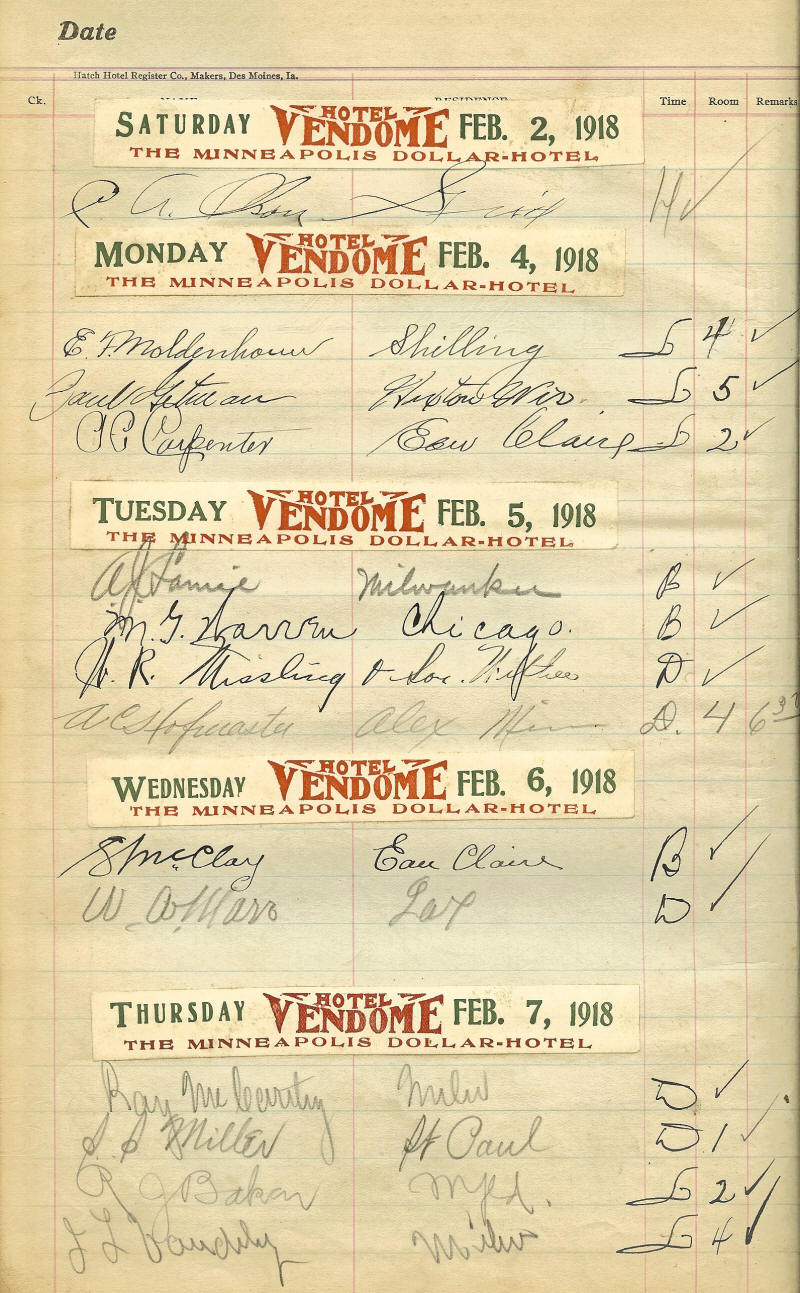 Date
Hatch Hotel Register Co., Makers, Des Moines, Ia.
Ck. NAME RESIDENCE Time Room Remarks
SATURDAY HOTEL VENDOME FEB. 2, 1918
THE MINNEAPOLIS DOLLAR-HOTEL
A. Olson H ✓
MONDAY HOTEL VENDOME FEB. 4, 1918
THE MINNEAPOLIS DOLLAR-HOTEL
E. F. Moldenhauer Shilling L 4 ✓
Paul Gitman Hixton Wis. L 5 ✓
Carpenter Eau Claire L 2 ✓
TUESDAY HOTEL VENDOME FEB. 5, 1918
THE MINNEAPOLIS DOLLAR-HOTEL
A. J. Lamie Milwaukee B ✓
M. G. Warren Chicago. B ✓
W. R. Missling & Son. Withee D ✓
A C Hofmaster Alex Minn D. 4
WEDNESDAY HOTEL VENDOME FEB. 6, 1918
THE MINNEAPOLIS DOLLAR-HOTEL
S McClay Eau Claire B ✓
W. W. Marv Lax D ✓
THURSDAY HOTEL VENDOME FEB. 7, 1918
THE MINNEAPOLIS DOLLAR-HOTEL
Ray McCarthy Milw D ✓
Miller St Paul D 1 ✓
R J Baker Mpls. L 2 ✓
Milw L 4 ✓